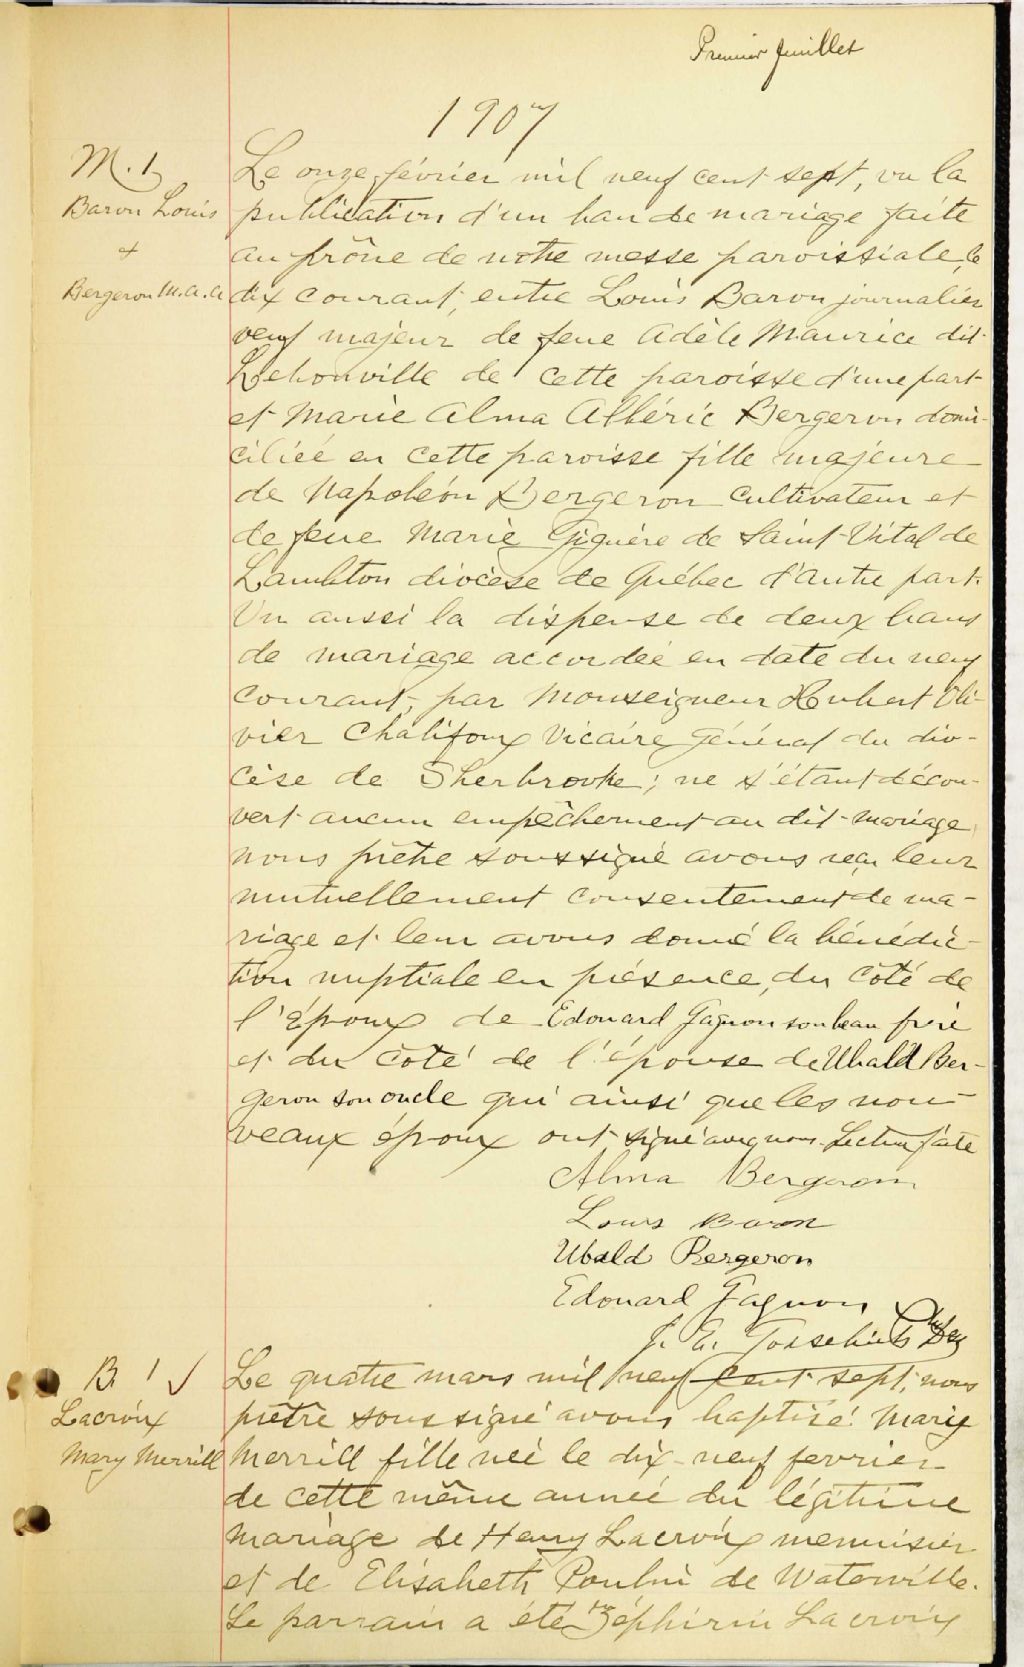 Premier feuillet
1907
M. 1
Baron Louis
+
Bergeron M.A.A
Le onze février mil neuf cent sept, vu la
publication d'un ban de mariage faite
au prône de notre messe paroissiale, le
dix courant, entre Louis Baron journalier
veuf majeur de feue Adèle Maurice dit
Lehouville de cette paroisse d'une part
et Marie Alma Albéric Bergeron domi-
ciliée en cette paroisse fille majeure
de Napoléon Bergeron cultivateur et
de feue Marie Giguère de Saint Vital de
Lambton diocèse de Québec d'autre part.
Vu aussi la dispense de deux bans
de mariage accordée en date du neuf
courant, par Monseigneur Hubert Oli-
vier Chalifoux Vicaire Général du dio-
cèse de Sherbrooke; ne s'étant décou-
vert aucun empêchement au dit mariage,
nous prêtre soussigné avons reçu leur
mutuellement consentement de ma-
riage et leur avons donné la bénédic-
tion nuptiale en présence, du côté de
l'époux de Edouard Gagnon son beau frère
et du côté de l'épouse de Ubald Ber-
geron son oncle qui ainsi que les nou-
veaux époux ont signé avec nous. Lecture faite
Alma Bergeron
Louis Baron
Ubald Bergeron
Edouard Gagnon
J. E. Gosselin
B. 1 ✓
Lacroix
Mary Merrill
Le quatre mars mil neuf cent sept, nous
prêtre soussigné avons baptisé Mary
Merrill fille née le dix-neuf fevrier
de cette même année du légitime
mariage de Henry Lacroix menuisier
et de Elisabeth Poulin de Waterville.
Le parrain a été Zéphirin Lacroix